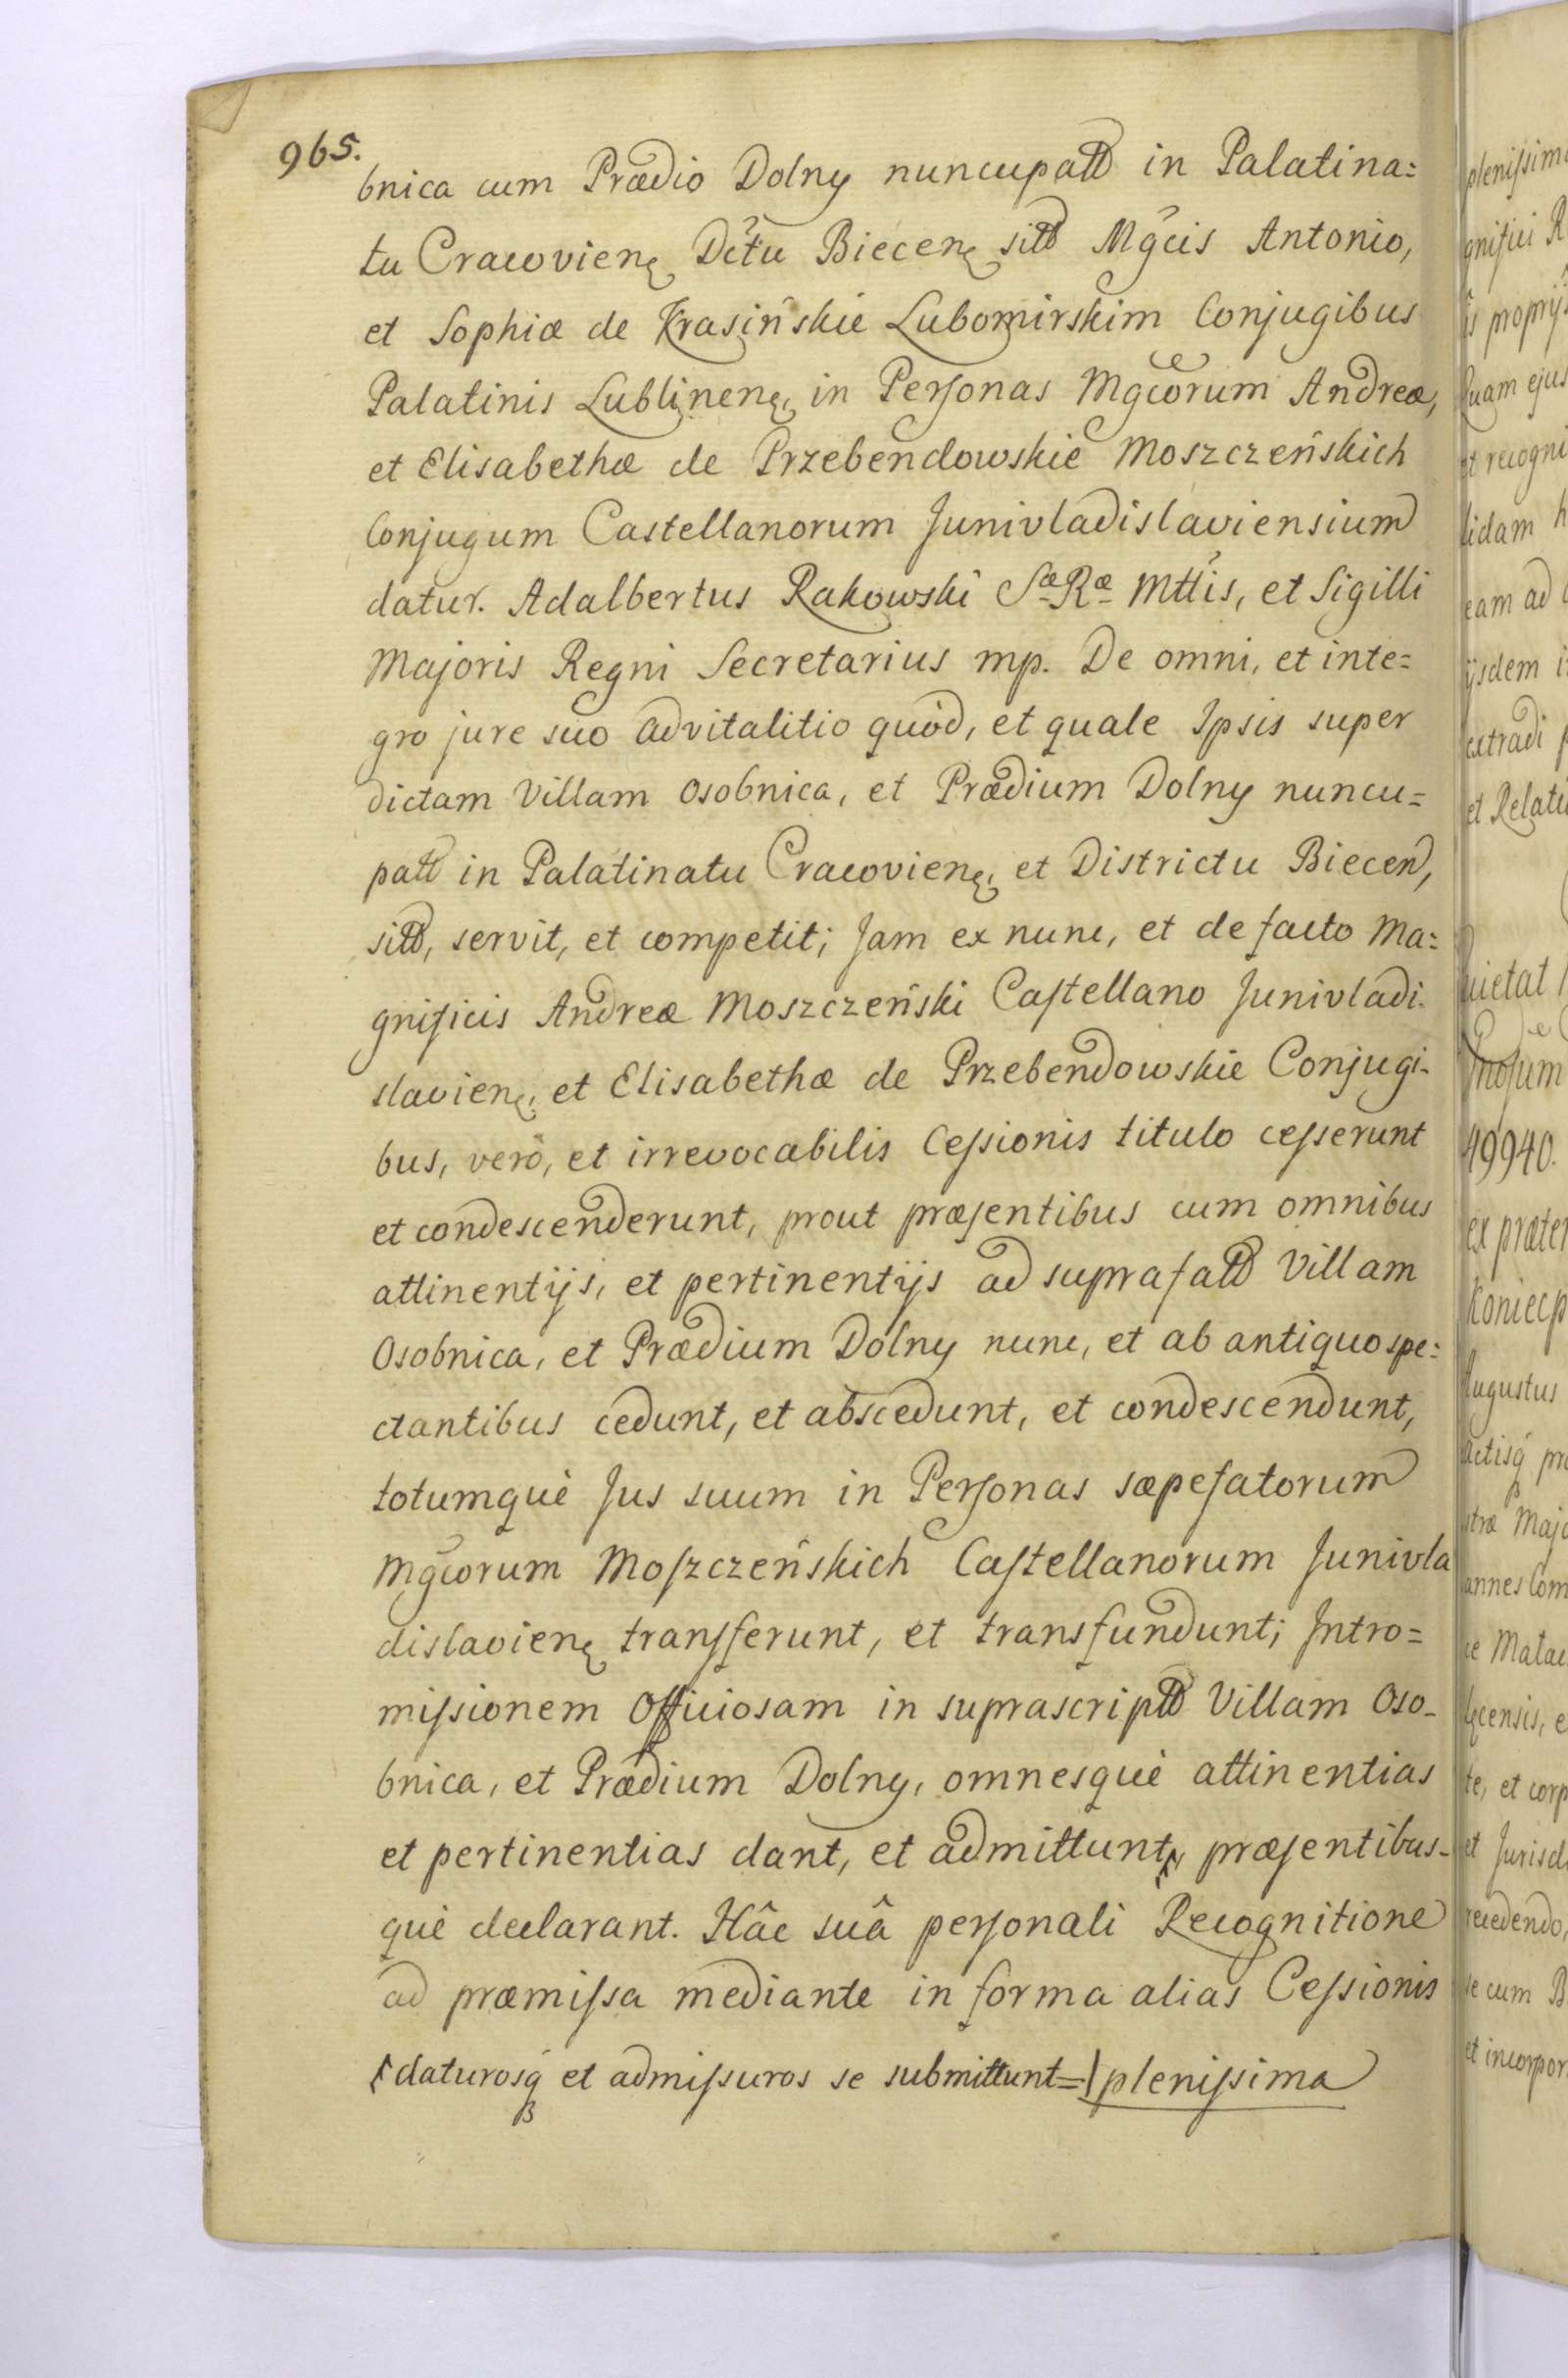 965.
bnica cum Prædio Dolny nuncupatt in Palatina=
tu Cracovien, Dctu Biecen, sitt Mgcis Antonio,
et Sophiæ de Krasińskie Lubomirskim Conjugibus
Palatinis Lublinen, in Personas Mgcorum Andreæ,
et Elisabethæ de Przebendowskie Moszczeńskich
Conjugum Castellanorum Junivladislaviensium
datur. Adalbertus Rakowski Sæ Ræ Mttis, et Sigilli
Majoris Regni Secretarius mp. De omni, et inte=
gro jure suo advitalitio quòd, et quale Ipsis super
dictam Villam Osobnica, et Prædium Dolny nuncu=
patt in Palatinatu Cracovien, et Districtu Biecen,
sitt, servit, et competit; Jam ex nunc, et de facto Ma=
gnificis Andreæ Moszczeński Castellano Junivladi-
slavien, et Elisabethæ de Przebendowskie Conjugi-
bus, verò, et irrevocabilis Cessionis titulo cesserunt
et condescenderunt, prout præsentibus cum omnibus
attinentijs, et pertinentijs ad suprafatt Villam
Osobnica, et Prædium Dolny nunc, et ab antiquo spe=
ctantibus cedunt, et abscedunt, et condescendunt,
totumquè Jus suum in Personas sæpefatorum
Mgcorum Moszczeńskich Castellanorum Junivla
dislavien, transferunt, et transfundunt; Intro=
missionem Officiosam in suprascriptt Villam Oso-
bnica, et Prædium Dolny, omnesquè attinentias
et pertinentias dant, et admittunt, præsentibus-
què declarant. Hâc suâ personali Recognitione
ad præmissa mediante in forma alias Cessionis
daturosq et admissuros se submittunt= plenissima